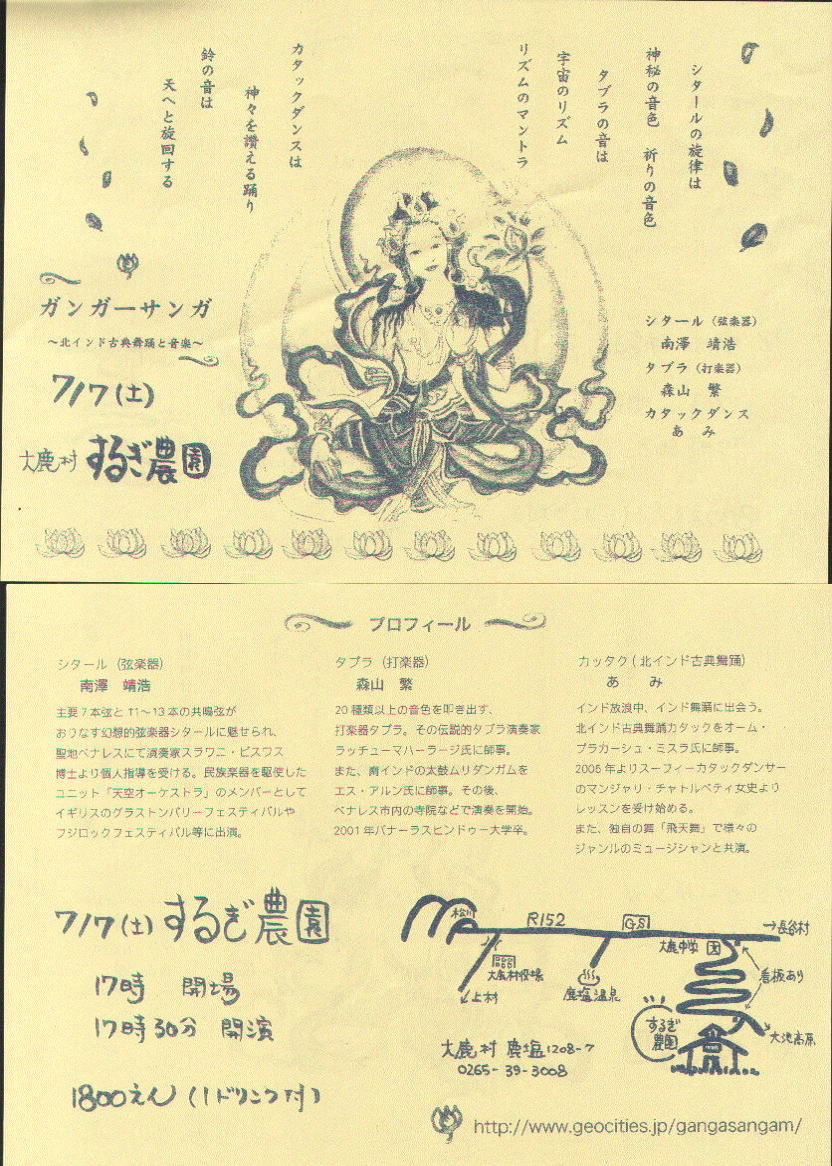 シタールの旋律は
神秘の音色　祈りの音色
タブラの音は
宇宙のリズム
リズムのマントラ
カタックダンスは
神々を讃える踊り
鈴の音は
天へと旋回する
ガンガーサンガ
～北インド古典舞踊と音楽～
7/7(土)
大鹿村 するぎ農園
シタール（弦楽器）
南澤　靖浩
タブラ（打楽器）
森山　繁
カタックダンス
あ　み
プロフィール
シタール（弦楽器）
南澤　靖浩
主要７本弦と11～13本の共鳴弦が
おりなす幻想的弦楽器シタールに魅せられ、
聖地ベナレスにて演奏家スラワニ・ビスワス
博士より個人指導を受ける。民族楽器を駆使した
ユニット「天空オーケストラ」のメンバーとして
イギリスのグラストンバリーフェスティバルや
フジロックフェスティバル等に出演。
タブラ（打楽器）
森山　繁
20種類以上の音色を叩き出す、
打楽器タブラ。その伝説的タブラ演奏家
ラッチューマハーラージ氏に師事。
また、南インドの太鼓ムリダンガムを
エス・アルン氏に師事。その後、
ベナレス市内の寺院などで演奏を開始。
2001年バナーラスヒンドゥー大学卒。
カッタク(北インド古典舞踊)
あ　み
インド放浪中、インド舞踊に出会う。
北インド古典舞踊カタックをオーム・
プラカーシュ・ミスラ氏に師事。
2005年よりスーフィーカタックダンサー
のマンジャリ・チャトルベティ女史より
レッスンを受け始める。
また、独自の舞「飛天舞」で様々の
ジャンルのミュージシャンと共演。
7/7(土) するぎ農園
17時　開場
17時30分　開演
1800えん（1ドリンク付）
松川
R152
GS
→長谷村
大鹿村役場
上村
鹿塩温泉
大鹿中学
文
看板あり
するぎ
農園
大池高原
大鹿村 鹿塩1208-7
0265-39-3008
http://www.geocities.jp/gangasangam/